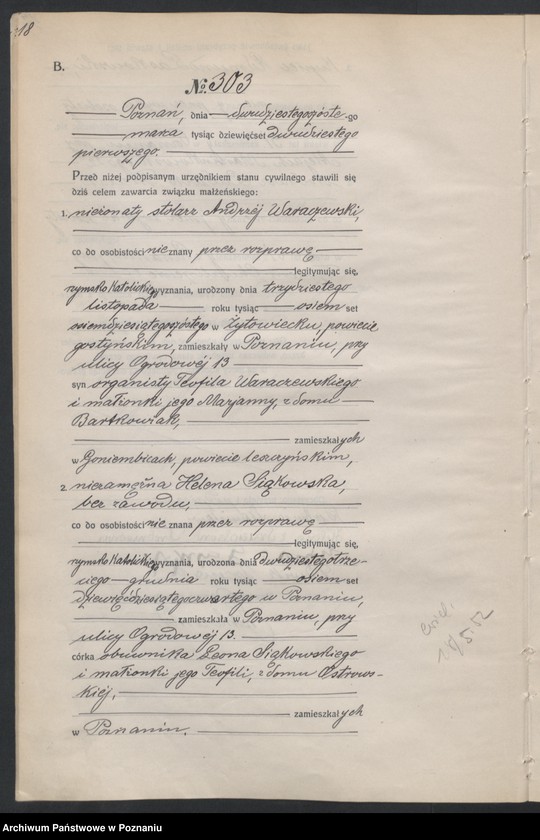 218
B.
№ 303
Poznań, dnia dwudziestegoszóste-go
marca tysiąc dziewięćset dwudziestego
pierwszego.
Przed niżej podpisanym urzędnikiem stanu cywilnego stawili się
dziś celem zawarcia związku małżeńskiego:
1. nieżonaty stolarz Andrzéj Waraczewski,
co do osobistości nie znany przez rozprawę
legitymując się,
rzymsko Katolickiego wyznania, urodzony dnia trzydziestego
listopada roku tysiąc osiem set
osiemdziesiątegoszóstego w Żytowiecku, powiecie
gostyńskim, zamieszkały w Poznaniu, przy
ulicy Ogrodowéj 13
syn organisty Teofila Waraczewskiego
i małżonki jego Marjanny, z domu
Bartkowiak,
zamieszkałych
w Goniembicach, powiecie leszczyńskim,
2. niezamężna Helena Siąkowska,
bez zawodu,
co do osobistości nie znana przez rozprawę
legitymując się,
rzymsko Katolickiego wyznania, urodzona dnia dwudziestegotrze-
ciego grudnia roku tysiąc osiem set
dziewięćdziesiątegoczwartego w Poznaniu,
zamieszkała w Poznaniu, przy
ulicy Ogrodowéj 13.
córka obuwnika Leona Siąkowskiego
i małżonki jego Teofili, z domu Ostrows-
kiéj,
zamieszkałych
w Poznaniu.
Archiwum Państwowe w Poznaniu